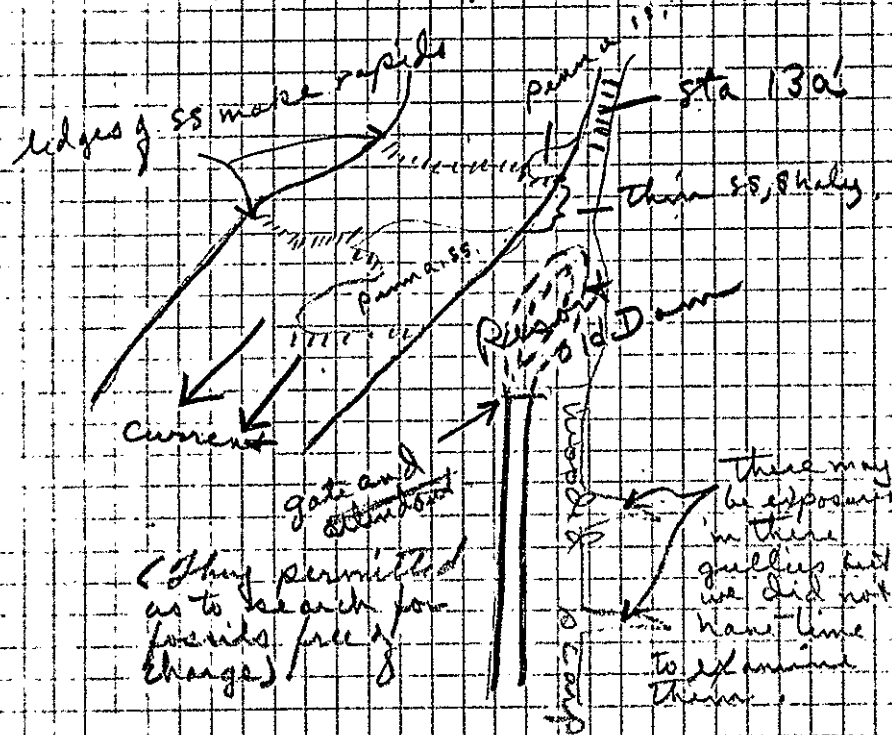 ledges of ss make rapids
Penn a ss.
sta 13a
thin ss, shaly
Penn a. ss.
Resort
old Dam
Current
gate and
attendant
woods
scarp
(They permitted
us to search for
fossils free of
charge)
there may
be exposures
in these
gullies but
we did not
have time
to examine
them.